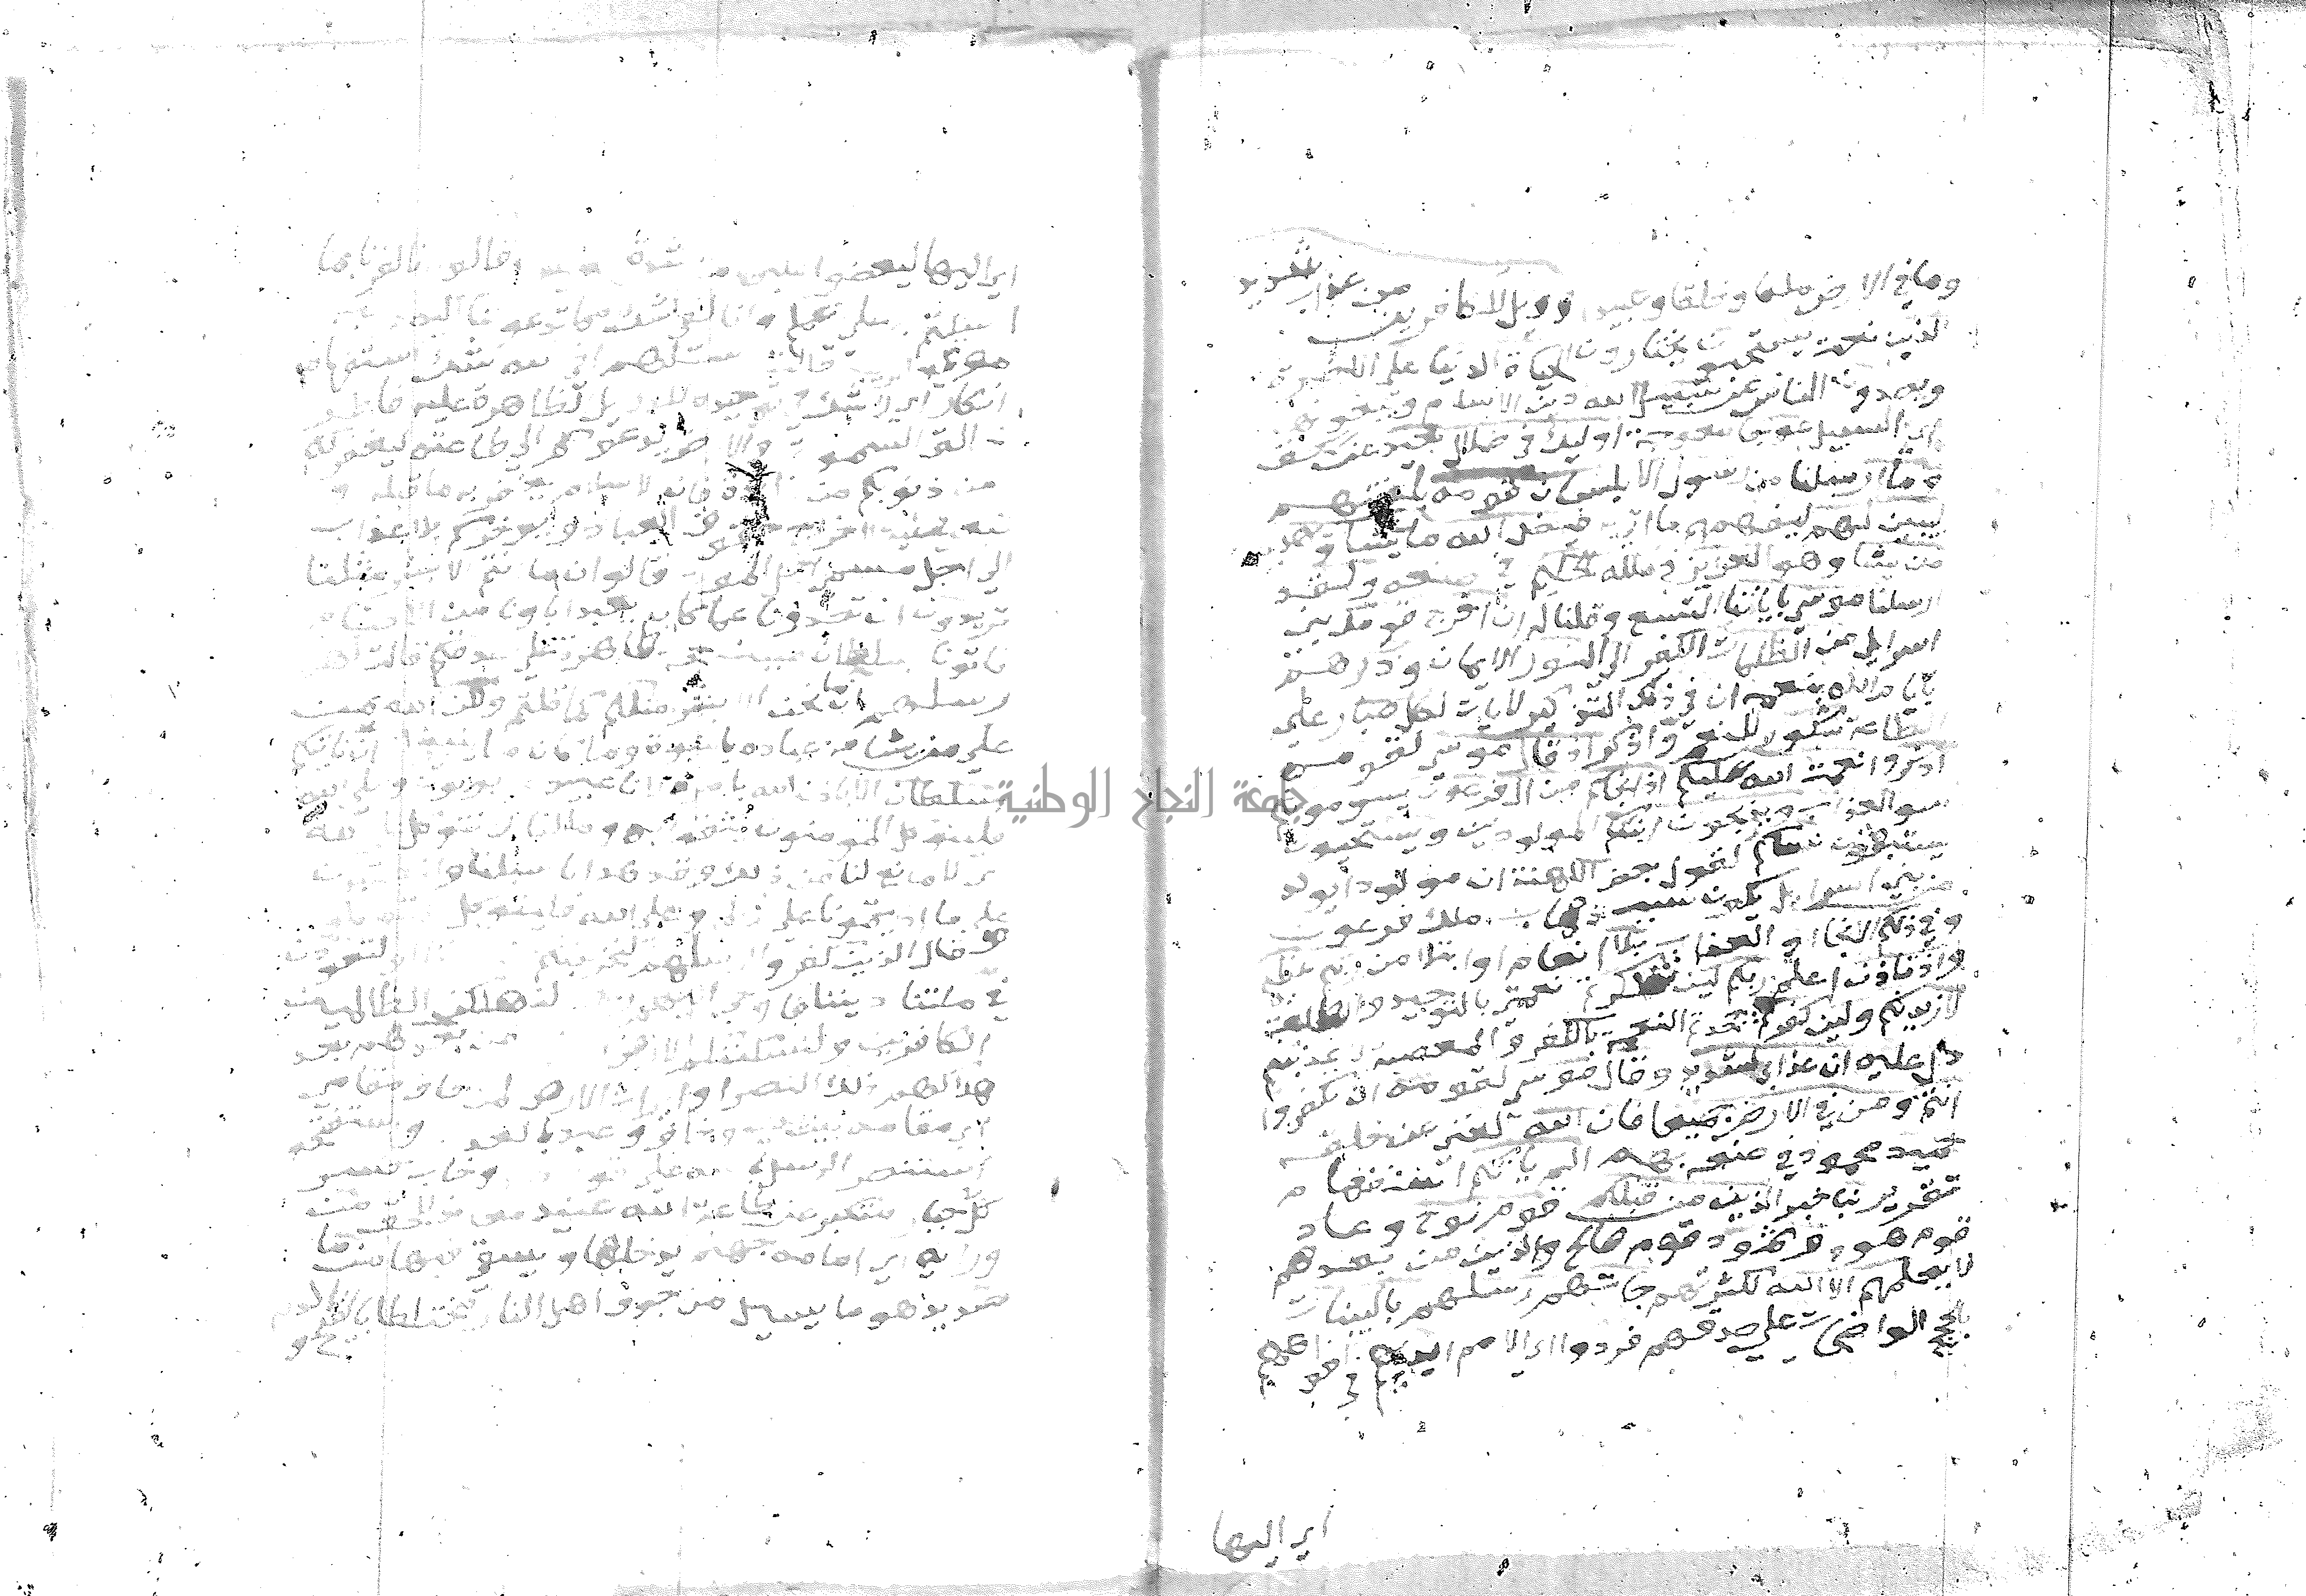 وما في الارض ملكا وخلقا وعبيدا وويل للكافرين من عذاب شديد
الذين نعت يستحبون يختارون الحياة الدنيا على الاخرة
ويصدون الناس عن سبيل الله دين الاسلام ويبغونها
اي السبيل عوجا معوجة اوليك في ضلال بعيد عن الحق
وما ارسلنا من رسول الا بلسان قومه بلغتهم
ليبين لهم ليفهمهم ما اتى به فيضل الله من يشا ويهدي
من يشا وهو العزيز في ملكه الحكيم في صنعه ولقد
ارسلنا موسى باياتنا التسع وقلنا له ان اخرج قومك بني
اسرايل من الظلمات الكفر الى النور الايمان وذكرهم
بايام الله بنعمه ان في ذلك التذكير لايات لكل صبار على
الطاعة شكور للنعم واذكر اذ قال موسى لقومه
اذكروا نعمت الله عليكم اذ انجاكم من ال فرعون يسومونكم
سو العذاب ويذبحون ابناكم المولودين ويستحيون
يستبقون نساكم لقول بعض الكهنة ان مولودا يولد
من بني اسرايل يكون سبب ذهاب ملك فرعون
وفي ذلكم الانجا او العذاب بلا انعام او ابتلا من ربكم عظيم
واذ تاذن اعلم ربكم لين شكرتم نعمتي بالتوحيد والطاعة
لازيدنكم ولين كفرتم جحدتم النعمة بالكفر والمعصية لاعذبنكم
دل عليه ان عذابي لشديد وقال موسى لقومه ان تكفروا
انتم ومن في الارض جميعا فان الله لغني عن خلقه
حميد محمود في صنعه بهم الم ياتكم استفهام
تقرير نبا خبر الذين من قبلكم قوم نوح وعاد
قوم هود وثمود قوم صالح والذين من بعدهم
لا يعلمهم الا الله لكثرتهم جاتهم رسلهم بالبينات
بالحجج الواضحات على صدقهم فردوا اي الامم ايديهم في افواههم
اي اليها
اي اليها ليعضوا عليها من شدة وقالوا انا كفرنا بما
ارسلتم على زعمكم وانا لفي شك مما تدعوننا اليه
موقع قالت رسلهم افي الله شك استفهام
انكار اي لا شك في توحيده للدلايل الظاهرة عليه فاطر
خالق السموات والارض يدعوكم الى طاعته ليغفر لكم
من ذنوبكم من زايدة فان الاسلام يغفر به ما قبله
العباد ويوخركم بلا عذاب
الى اجل مسمى اجل الموت قالوا ان ما انتم الا بشر مثلنا
تريدون ان تصدونا عما كان يعبد اباونا من الاصنام
فاتونا بسلطان مبين حجة ظاهرة على صدقكم قالت لهم
رسلهم ان ما نحن الا بشر مثلكم كما قلتم ولكن الله يمن
على من يشا من عباده بالنبوة وما كان لنا ان ناتيكم
بسلطان الا باذن الله بامره لانا عبيد وعلى الله
فليتوكل المومنون وما لنا ان لا نتوكل على الله
اي لا مانع لنا من ذلك وقد هدانا سبلنا ولنصبرن
على ما اذيتمونا على اذاكم وعلى الله فليتوكل
وقال الذين كفروا لرسلهم لنخرجنكم لتعودن
في ملتنا ديننا فاوحى اليهم لنهلكن الظالمين
الكافرين ولنسكننكم الارض من بعدهم بعد
هلاكهم ذلك النصر وايراث الارض لمن خاف مقامي
اي مقامه بين يدي وخاف وعيد بالعذاب واستفتحوا
استنصر الرسل بالله على قومهم وخاب خسر
كل جبار متكبر عن طاعة الله عنيد معاند للحق من
ورايه اي امامه جهنم يدخلها ويسقى فيها من ما
صديد هو ما يسيل من جوف اهل النار مختلطا بالقيح والدم